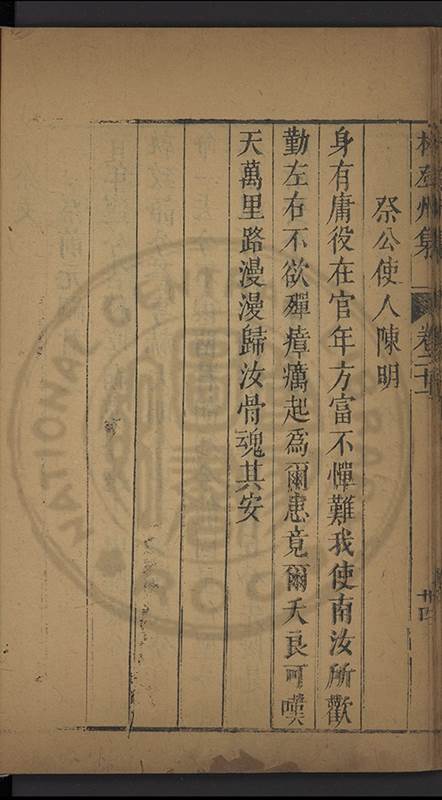 林登州集 卷二十一
廿四
祭公使人陳明
身有庸役在官年方富不憚難我使南汝所歡
勤左右不欲殫瘴癘起爲爾患竟爾夭良可嘆
天萬里路漫漫歸汝骨魂其安